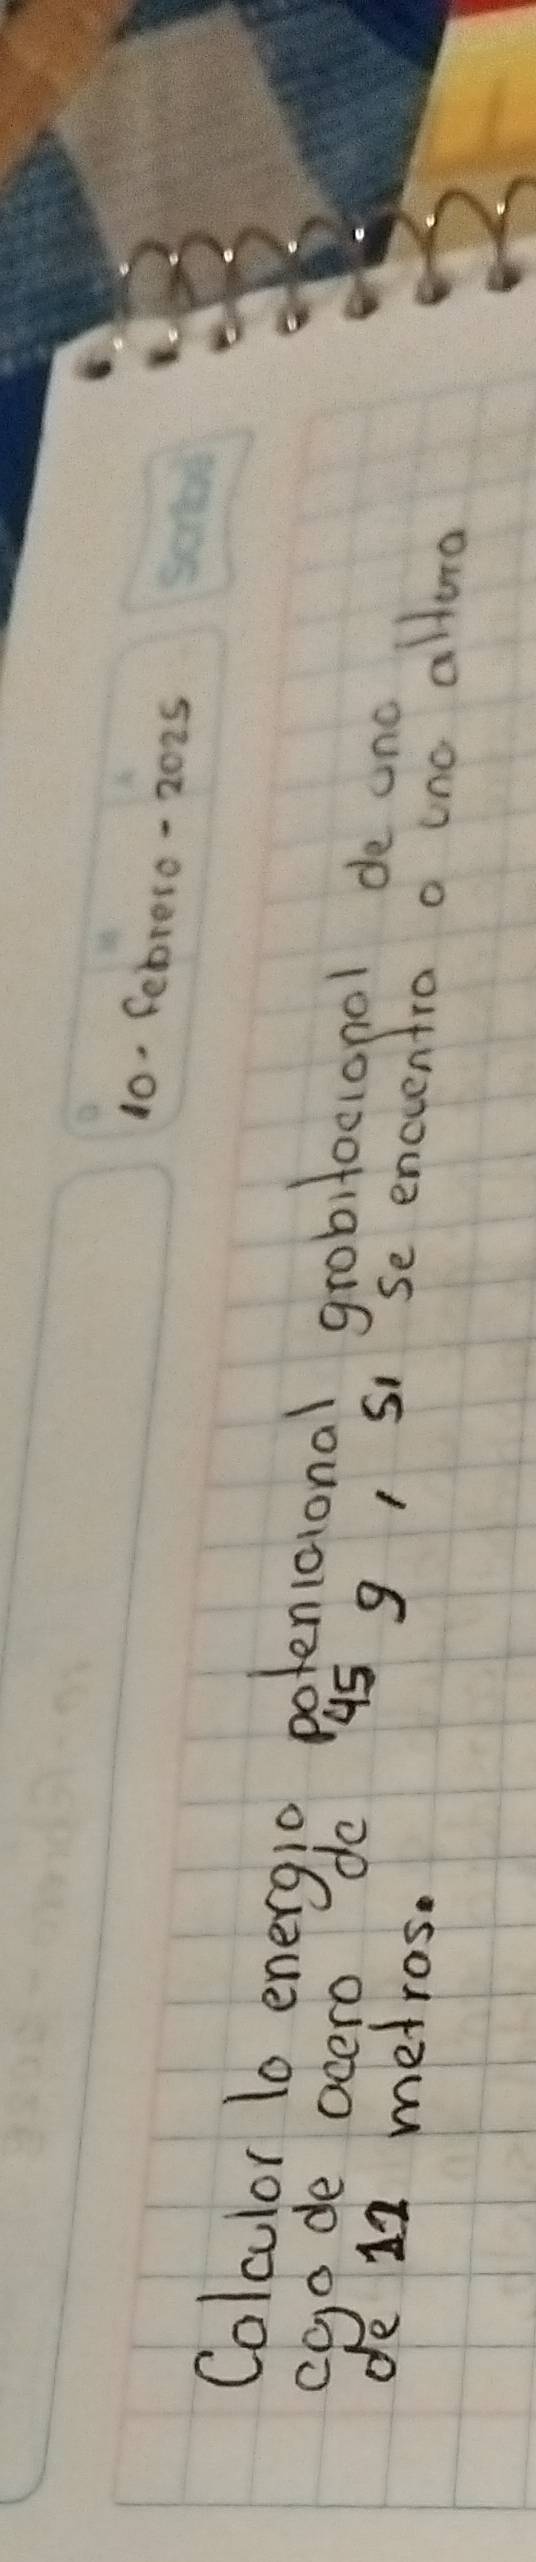 Scribe
10. Febrero - 2025
Calcular la energia potenicional grabitacional de una
caja de acero de 45 g , si se encuentra a una altura
de 12 metros.